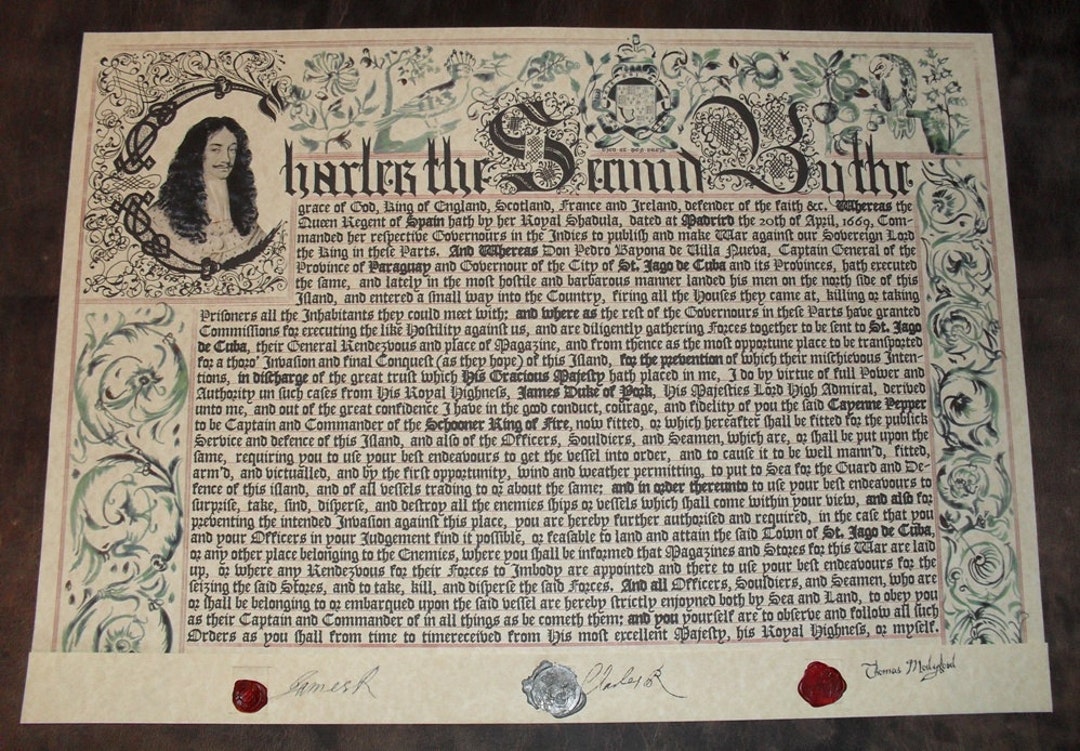 Charles the Second By the
grace of God, King of England, Scotland, France and Ireland, defender of the faith &c. Whereas the
Queen Regent of Spain hath by her Royal Shadula, dated at Madrird the 20th of April, 1669, Com-
manded her respective Governours in the Indies to publish and make War against our Sovereign Lord
the King in these Parts. And Whereas Don Pedro Bayona de Villa Nueba, Captain General of the
Province of Paraguay and Governour of the City of St. Jago de Cuba and its Provinces, hath executed
the same, and lately in the most hostile and barbarous manner landed his men on the north side of this
Island, and entered a small way into the Country, firing all the Houses they came at, killing or taking
Prisoners all the Inhabitants they could meet with: and where as the rest of the Governours in these Parts have granted
Commissions for executing the like Hostility against us, and are diligently gathering Forces together to be sent to St. Jago
de Cuba, their General Rendezvous and place of Magazine, and from thence as the most opportune place to be transported
for a thoro' Invasion and final Conquest (as they hope) of this Island, for the prevention of which their mischievous Inten-
tions, in discharge of the great trust which His Gracious Majesty hath placed in me, I do by virtue of full Power and
Authority un such cases from His Royal Highness, James Duke of York, His Majesties Lord High Admiral, derived
unto me, and out of the great confidence I have in the good conduct, courage, and fidelity of you the said Cayenne Pepper
to be Captain and Commander of the Schooner Ring of Fire, now fitted, or which hereafter shall be fitted for the publich
Service and defence of this Island, and also of the Officers, Souldiers, and Seamen, which are, or shall be put upon the
same, requiring you to use your best endeavours to get the vessel into order, and to cause it to be well mann'd, fitted,
arm'd, and victualled, and by the first opportunity, wind and weather permitting, to put to Sea for the Guard and De-
fence of this island, and of all vessels trading to or about the same: and in order thereunto to use your best endeavours to
surprise, take, sind, disperse, and destroy all the enemies ships or vessels which shall come within your view, and also for
preventing the intended Invasion against this place, you are hereby further authorised and required, in the case that you
and your Officers in your Judgement find it possible, or feasable to land and attain the said Town of St. Jago de Cuba,
or any other place belonging to the Enemies, where you shall be informed that Magazines and Stores for this War are laid
up, or where any Rendezvous for their Forces to Imbody are appointed and there to use your best endeavours for the
seizing the said Stores, and to take, kill, and disperse the said Forces. And all Officers, Souldiers, and Seamen, who are
or shall be belonging to or embarqued upon the said vessel are hereby strictly enjoyned both by Sea and Land, to obey you
as their Captain and Commander of in all things as be cometh them: and you yourself are to observe and follow all such
Orders as you shall from time to timereceived from His most excellent Majesty, his Royal Highness, or myself.
James R
Charles R
Thomas Modyford